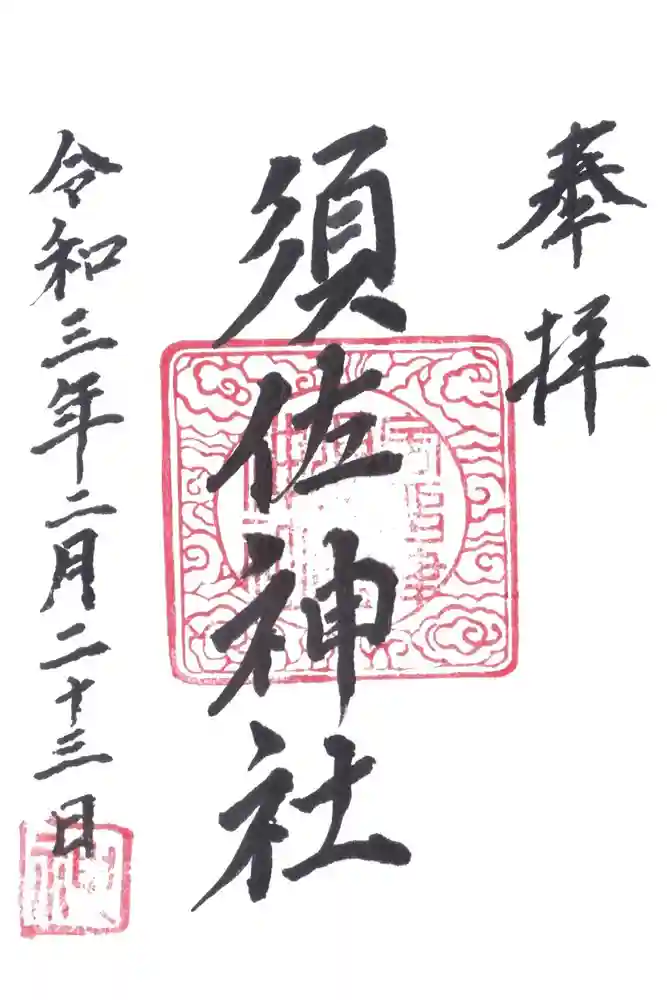 奉拝
須佐神社
令和三年二月二十三日